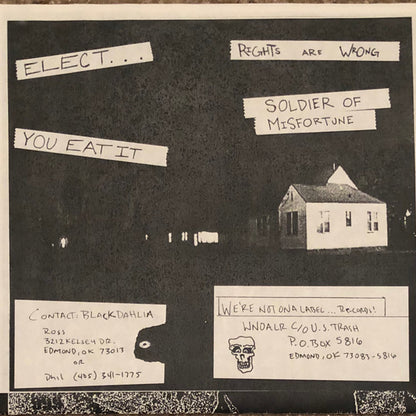 ELECT...
YOU EAT IT
RIGHTS ARE WRONG
SOLDIER OF
MISFORTUNE
CONTACT: BLACK DAHLIA
ROSS
3212 KELSEY DR.
EDMOND, OK 73013
OR
Phil (405) 341-1775
WE'RE NOT ON A LABEL... RECORDS!
WNOALR C/O U.S. TRASH
P.O. BOX 5816
EDMOND, OK 73083-5816